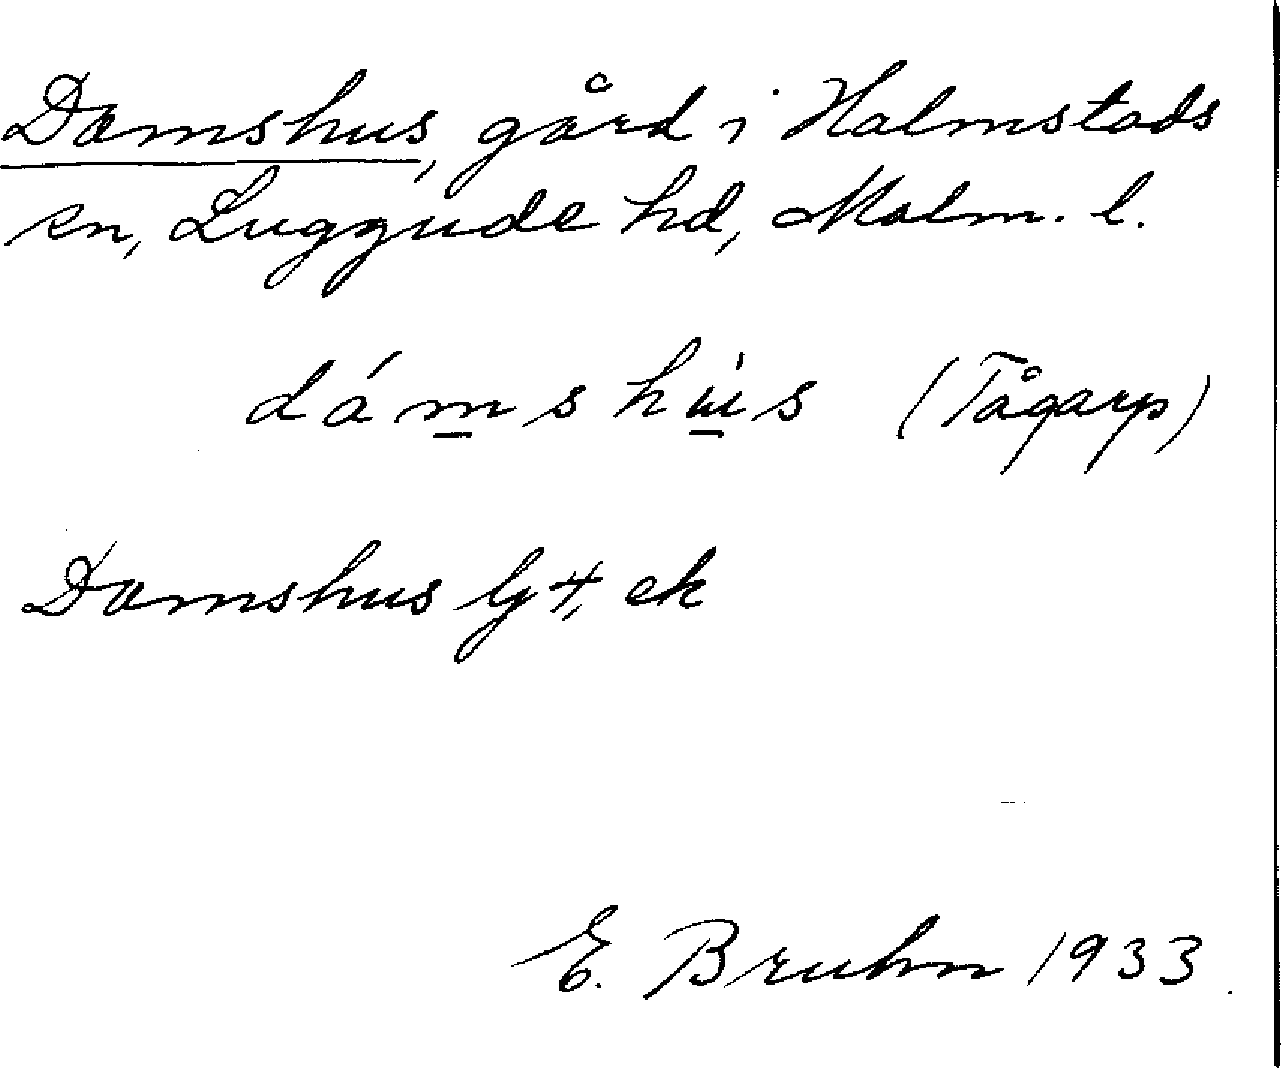 Damshus, gård i Halmstads
sn, Luggude hd, Malm. l.
dámshus (Tågarp)
Damshus Gt, ek
E. Bruhn 1933.